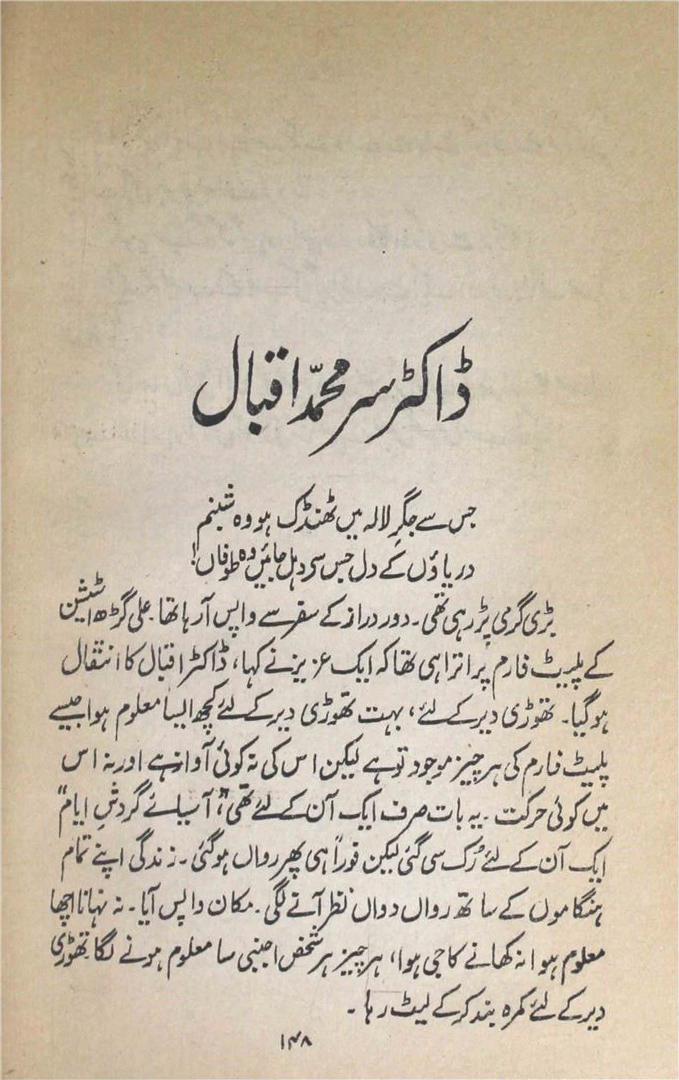 ڈاکٹر سر محمدّ اقبال
جس سے جگرِ لالہ میں ٹھنڈک ہو وہ شبنم
دریاؤں کے دل جس سی دہل جائیں وہ طوفاں!
بڑی گرمی پڑ رہی تھی۔ دور دراز کے سفر سے واپس آرہا تھا۔ علی گڑھ اسٹیشن
کے پلیٹ فارم پر اترا ہی تھا کہ ایک عزیز نے کہا، ڈاکٹر اقبال کا انتقال
ہوگیا۔ تھوڑی دیر کے لئے، بہت تھوڑی دیر کے لئے کچھ ایسا معلوم ہوا جیسے
پلیٹ فارم کی ہر چیز موجود تو ہے لیکن اس کی نہ کوئی آواز ہے اور نہ اس
میں کوئی حرکت۔ یہ بات صرف ایک آن کے لئے تھی، "آسیائے گردشِ ایام"
ایک آن کے لئے رُک سی گئی لیکن فوراً ہی پھر رواں ہوگئی۔ زندگی اپنے تمام
ہنگاموں کے ساتھ رواں دواں نظر آنے لگی۔ مکان واپس آیا۔ نہ نہانا اچھا
معلوم ہوا نہ کھانے کا جی ہوا، ہر چیز ہر شخص اجنبی سا معلوم ہونے لگا تھوڑی
دیر کے لئے کمرہ بند کرکے لیٹ رہا۔
۱۴۸